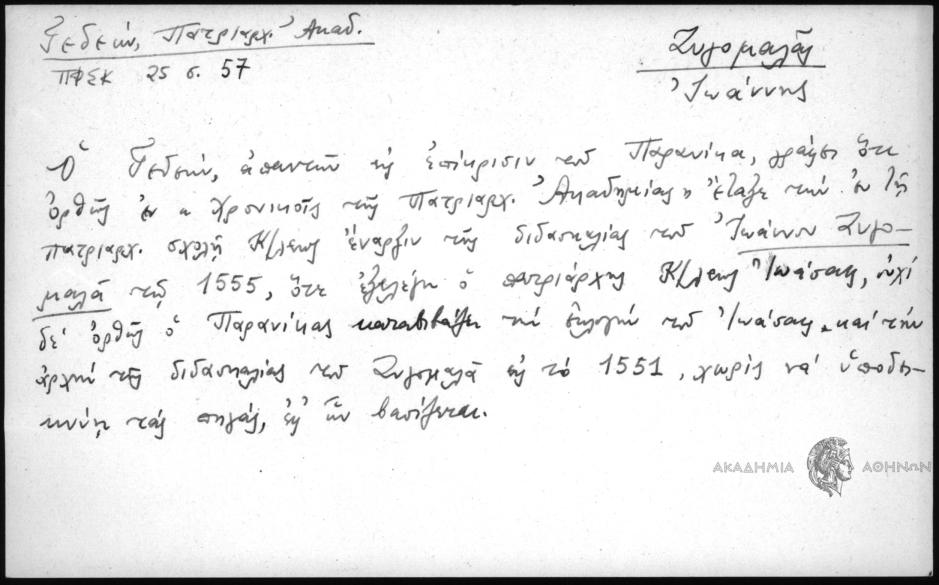 Γεδεών, Πατριαρχ. Ἀκαδ.
ΠΦΣΚ 25 σ. 57
Ζυγομαλᾶς
Ἰωάννης
Ὁ Γεδεών, ἀπαντῶν εἰς ἐπίκρισιν τοῦ Παρανίκα, γράφει ὅτι
ὀρθῶς ἐν τ. Χρονικοῖς τῆς Πατριαρχ. Ἀκαδημίας, ἔταξε τὴν ἐν τῇ
πατριαρχ. σχολῇ Κ/λεως ἔναρξιν τῆς διδασκαλίας τοῦ Ἰωάννου Ζυγο-
μαλᾶ τῷ 1555, ὅτε ἐξελέγη ὁ πατριάρχης Κ/λεως Ἰωάσαφ, οὐχὶ
δὲ ὀρθῶς ὁ Παρανίκας καταβιβάζει τὴν ἐκλογὴν τοῦ Ἰωάσαφ καὶ τὴν
ἀρχὴν τῆς διδασκαλίας τοῦ Ζυγομαλᾶ εἰς τὸ 1551, χωρὶς νὰ ὑποδει-
κνύῃ τὰς πηγάς, ἐφ' ὧν βασίζεται.
ΑΚΑΔΗΜΙΑ ΑΘΗΝΩΝ